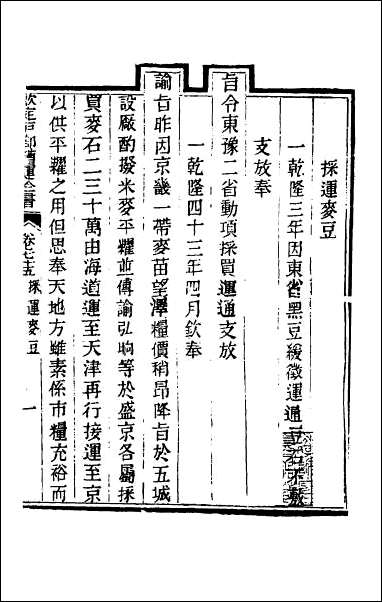 採運麥豆
一乾隆三年因東省黑豆緩徵運通豆石不敷
支放奉
旨令東豫二省動項採買運通支放
一乾隆四十三年四月欽奉
諭旨昨因京畿一帶麥苗望澤糧價稍昂降旨於五城
設廠酌撥米麥平糶並傳諭弘晌等於盛京各屬採
買麥石二三十萬由海道運至天津再行接運至京
以供平糶之用但思奉天地方雖素係市糧充裕而
欽定戶部漕運全書 卷七十五 採運麥豆 一